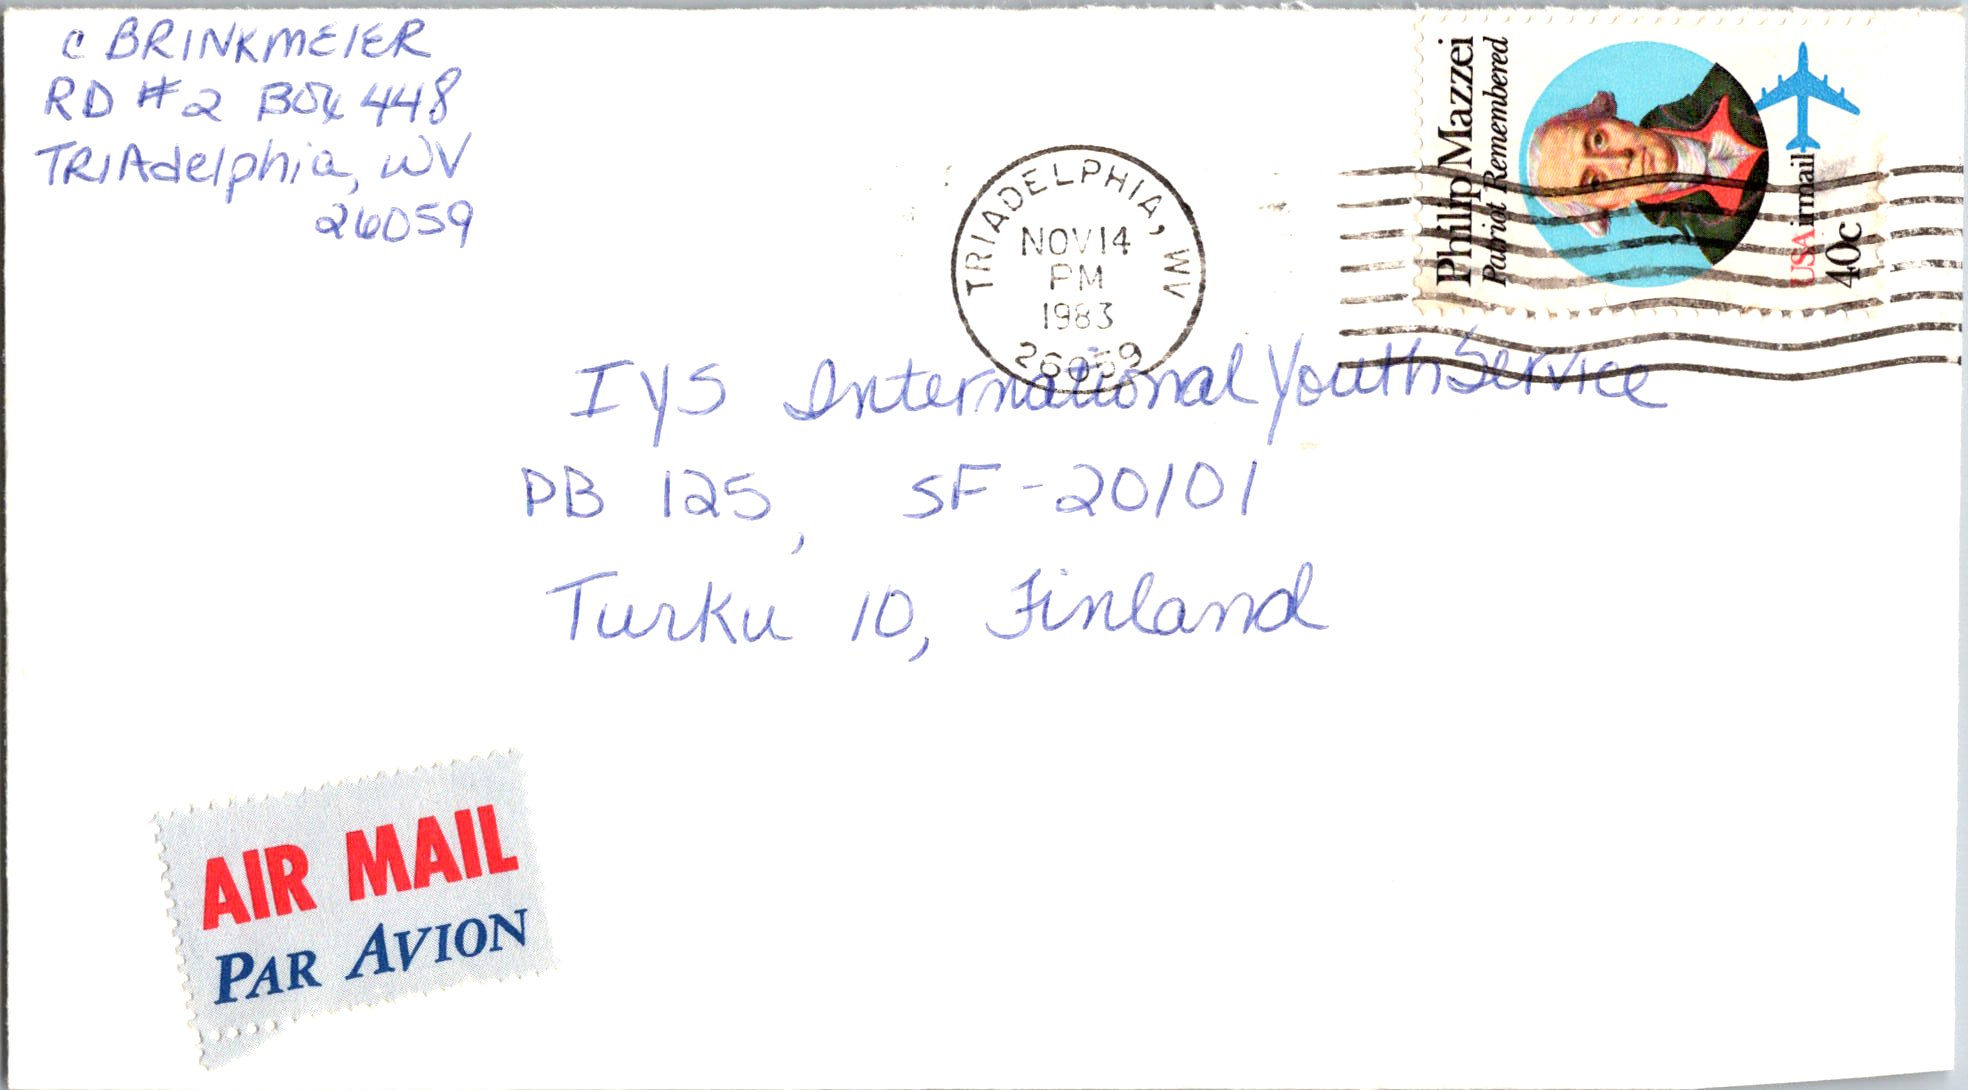 C BRINKMEIER
RD #2 Box 448
TRIAdelphia, WV
26059
TRIADELPHIA, WV
NOV 14
PM
1983
26059
Philip Mazzei
Patriot Remembered
USAirmail
40c
IYS International Youth Service
PB 125, SF-20101
Turku 10, Finland
AIR MAIL
PAR AVION